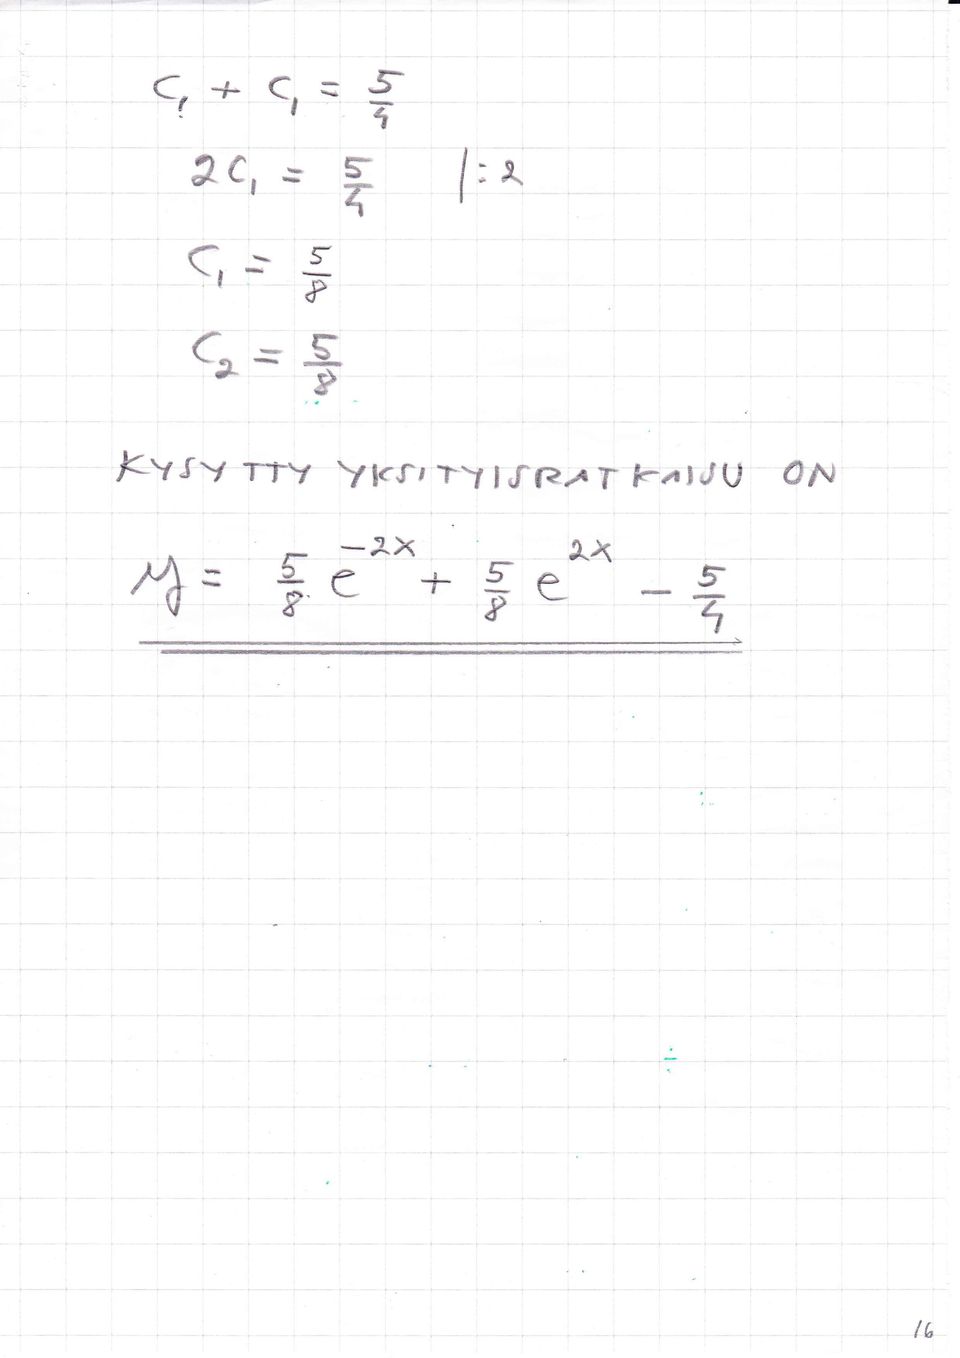 C₁ + C₁ = 5/4
2C₁ = 5/4 |:2
C₁ = 5/8
C₂ = 5/8
KYSYTTY YKSITYISRATKAISU ON
y = 5/8 e^(-2x) + 5/8 e^(2x) - 5/4
16